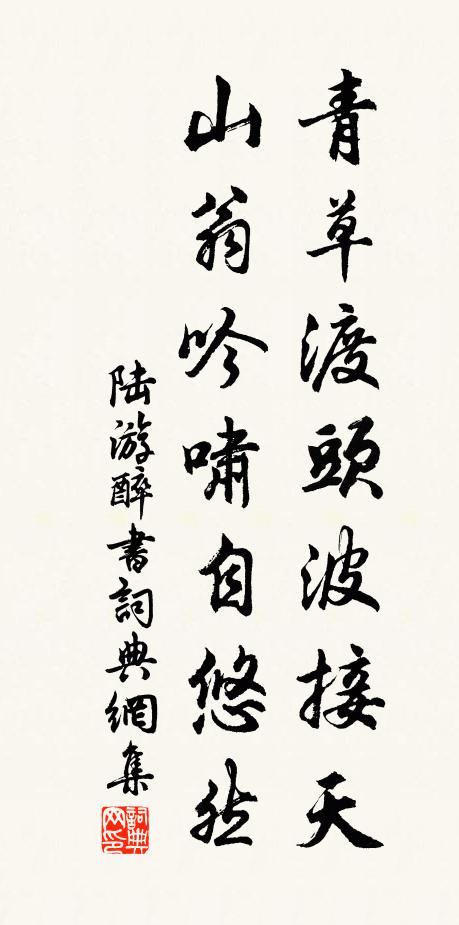 青草渡頭波接天
山翁吟嘯自悠然
陸游醉書詞典網集
詞典网印